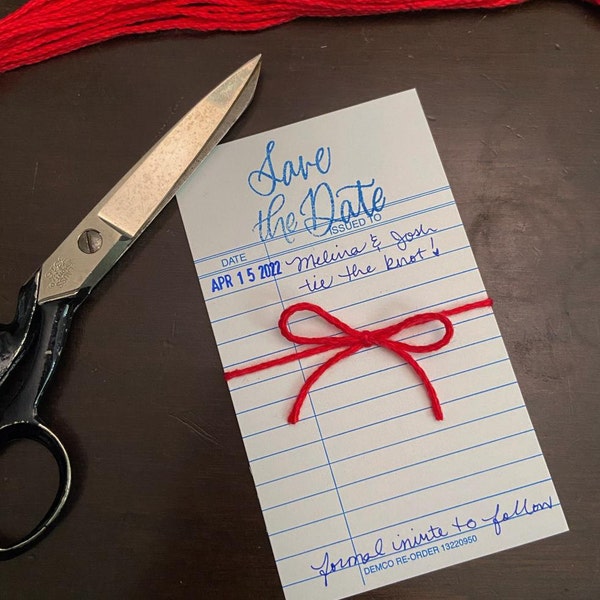 Save
the Date
ISSUED TO
DATE
APR 15 2022 Melina & Josh
tie the knot!
formal invite to follow
DEMCO RE-ORDER 13220950